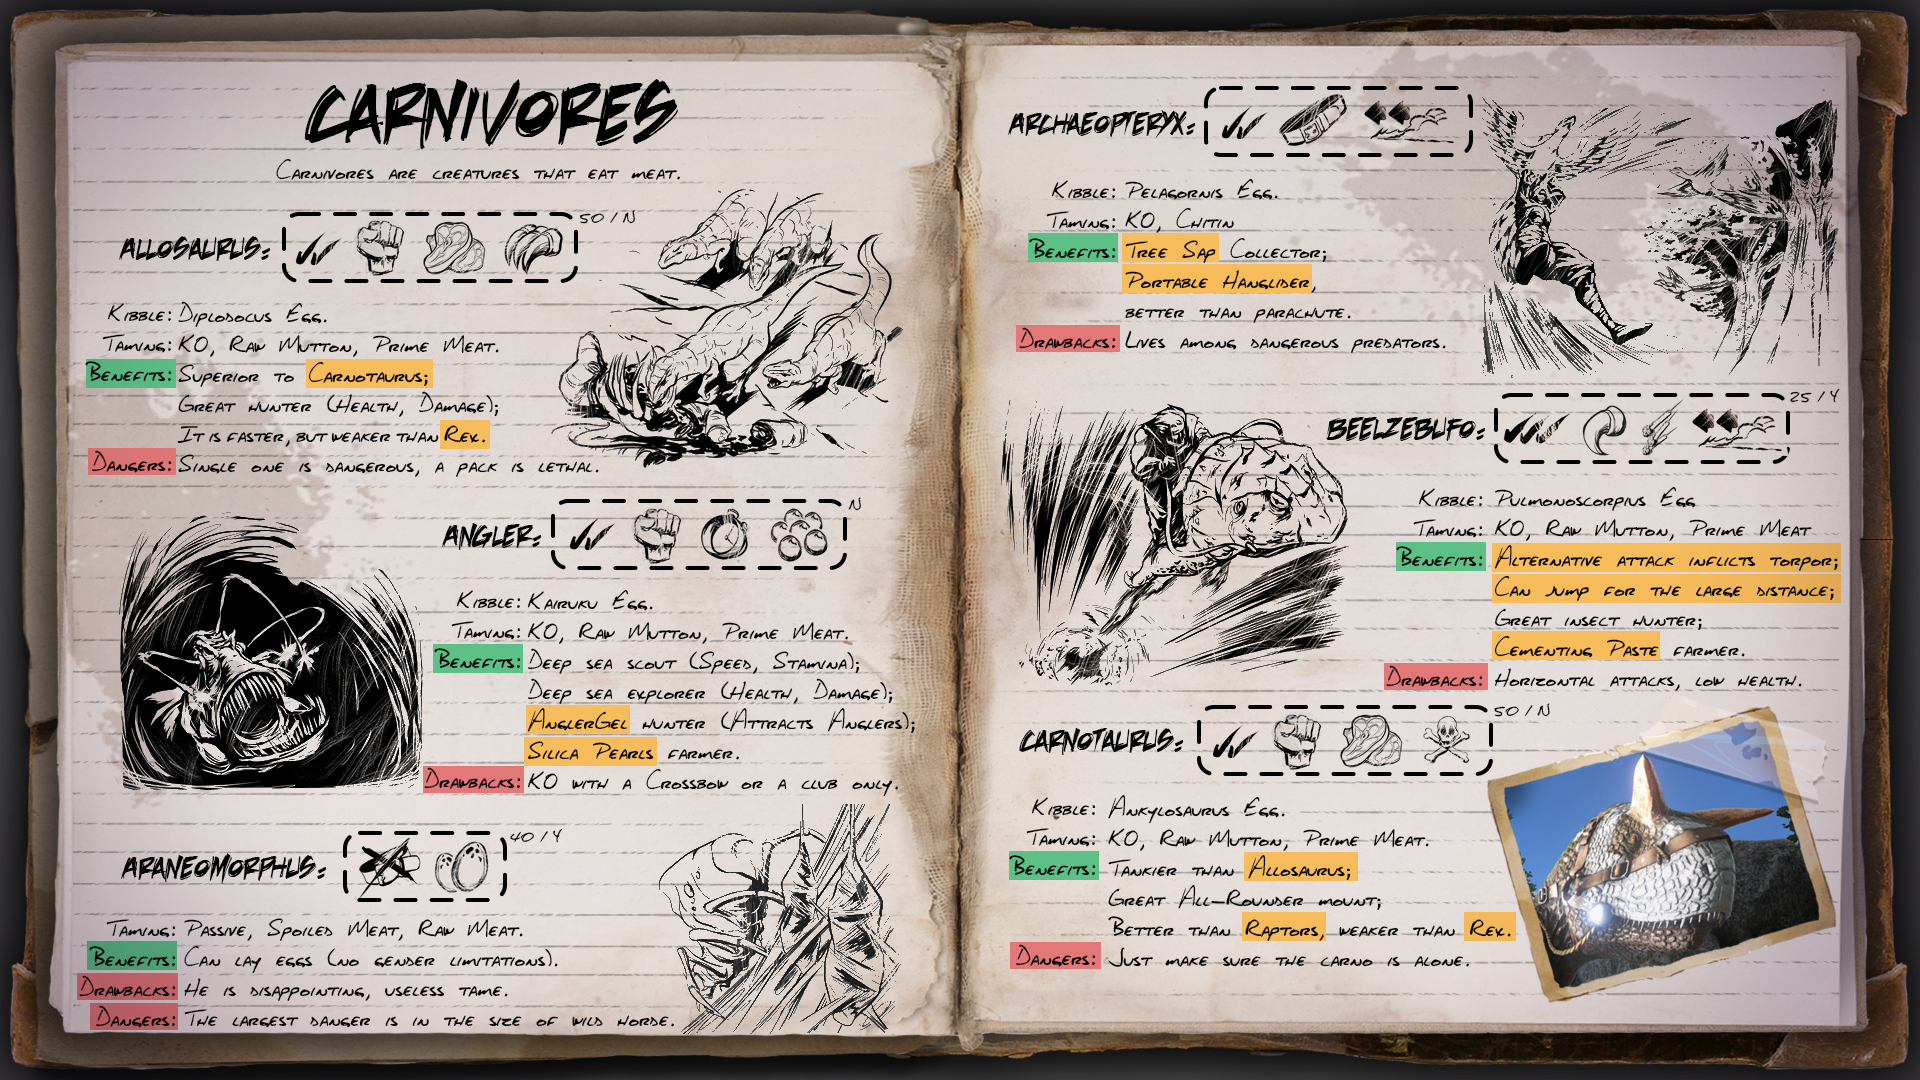 CARNIVORES
CARNIVORES ARE CREATURES THAT EAT MEAT.
ALLOSAURUS: 50 / N
KIBBLE: DIPLODOCUS EGG.
TAMING: KO, RAW MUTTON, PRIME MEAT.
BENEFITS: SUPERIOR TO CARNOTAURUS;
GREAT HUNTER (HEALTH, DAMAGE);
IT IS FASTER, BUT WEAKER THAN REX.
DANGERS: SINGLE ONE IS DANGEROUS, A PACK IS LETHAL.
ANGLER: N
KIBBLE: KAIRUKU EGG.
TAMING: KO, RAW MUTTON, PRIME MEAT.
BENEFITS: DEEP SEA SCOUT (SPEED, STAMINA);
DEEP SEA EXPLORER (HEALTH, DAMAGE);
ANGLERGEL HUNTER (ATTRACTS ANGLERS);
SILICA PEARLS FARMER.
DRAWBACKS: KO WITH A CROSSBOW OR A CLUB ONLY.
ARANEOMORPHUS: 40 / 4
TAMING: PASSIVE, SPOILED MEAT, RAW MEAT.
BENEFITS: CAN LAY EGGS (NO GENDER LIMITATIONS).
DRAWBACKS: HE IS DISAPPOINTING, USELESS TAME.
DANGERS: THE LARGEST DANGER IS IN THE SIZE OF WILD HORDE.
ARCHAEOPTERYX:
KIBBLE: PELAGORNIS EGG.
TAMING: KO, CHITIN
BENEFITS: TREE SAP COLLECTOR;
PORTABLE HANGLIDER,
BETTER THAN PARACHUTE.
DRAWBACKS: LIVES AMONG DANGEROUS PREDATORS.
BEELZEBUFO: 25 / 4
KIBBLE: PULMONOSCORPIUS EGG
TAMING: KO, RAW MUTTON, PRIME MEAT
BENEFITS: ALTERNATIVE ATTACK INFLICTS TORPOR;
CAN JUMP FOR THE LARGE DISTANCE;
GREAT INSECT HUNTER;
CEMENTING PASTE FARMER.
DRAWBACKS: HORIZONTAL ATTACKS, LOW HEALTH.
CARNOTAURUS: 50 / N
KIBBLE: ANKYLOSAURUS EGG.
TAMING: KO, RAW MUTTON, PRIME MEAT.
BENEFITS: TANKIER THAN ALLOSAURUS;
GREAT ALL-ROUNDER MOUNT;
BETTER THAN RAPTORS, WEAKER THAN REX.
DANGERS: JUST MAKE SURE THE CARNO IS ALONE.